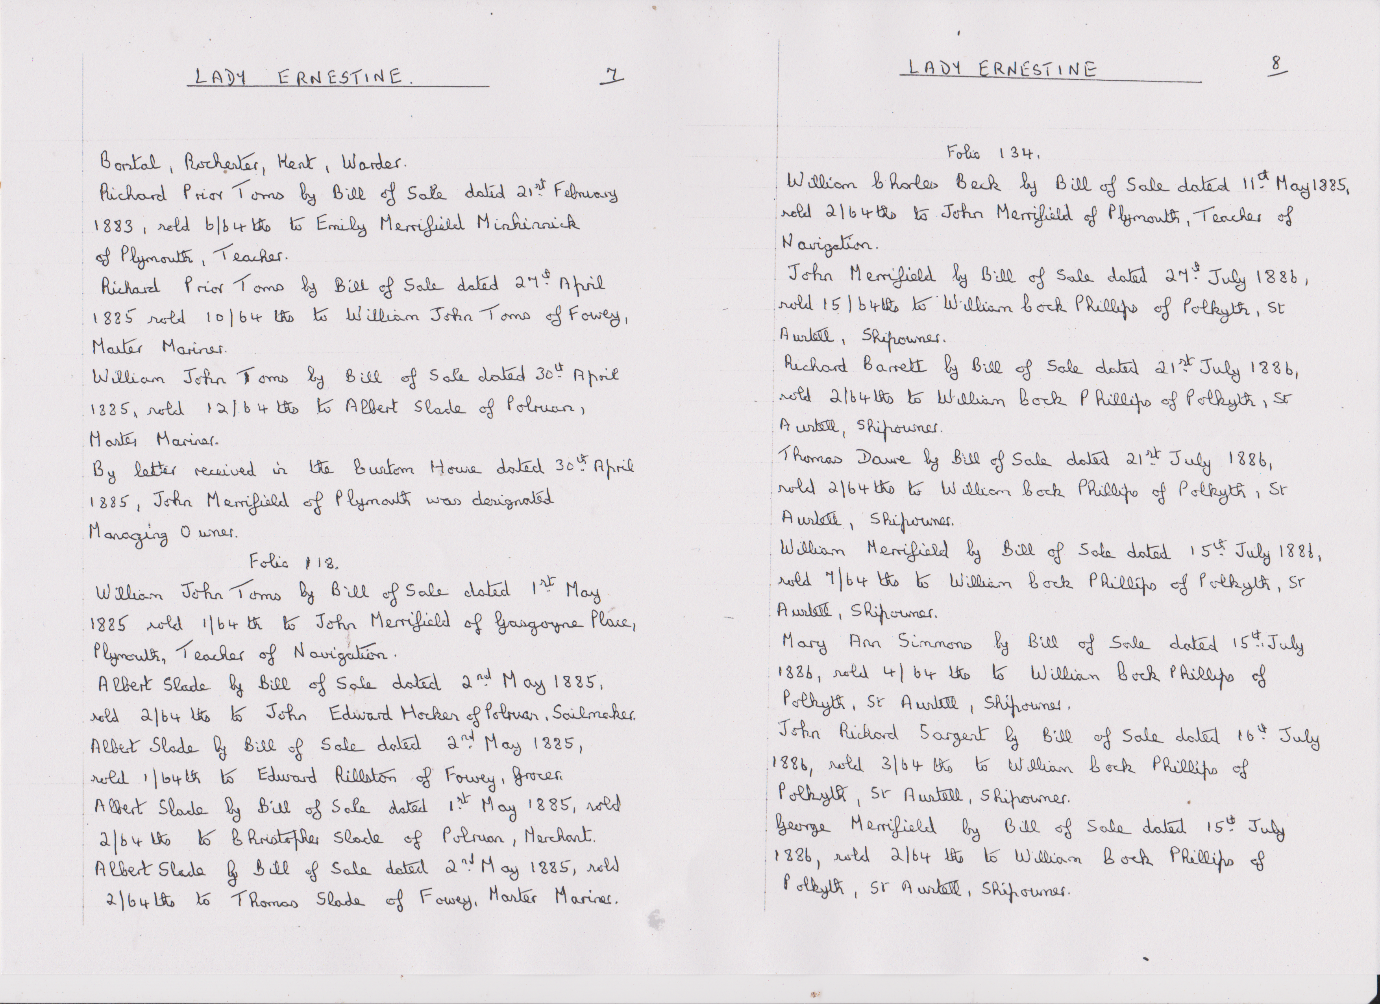 LADY ERNESTINE. 7
Borstal, Rochester, Kent, Warder.
Richard Prior Toms by Bill of Sale dated 21st February
1883, sold 6/64ths to Emily Merrifield Minhinnick
of Plymouth, Teacher.
Richard Prior Toms by Bill of Sale dated 27th April
1885 sold 10/64ths to William John Toms of Fowey,
Master Mariner.
William John Toms by Bill of Sale dated 30th April
1885, sold 12/64ths to Albert Slade of Polruan,
Master Mariner.
By letter received in the Custom House dated 30th April
1885, John Merrifield of Plymouth was designated
Managing Owner.
Folio 118.
William John Toms by Bill of Sale dated 1st May
1885 sold 1/64th to John Merrifield of Gasgoyne Place,
Plymouth, Teacher of Navigation.
Albert Slade by Bill of Sale dated 2nd May 1885,
sold 2/64ths to John Edward Hocken of Polruan, Sailmaker.
Albert Slade by Bill of Sale dated 2nd May 1885,
sold 1/64th to Edward Rillston of Fowey, Grocer.
Albert Slade by Bill of Sale dated 1st May 1885, sold
2/64ths to Christopher Slade of Polruan, Merchant.
Albert Slade by Bill of Sale dated 2nd May 1885, sold
2/64ths to Thomas Slade of Fowey, Master Mariner.
LADY ERNESTINE 8
Folio 134.
William Charles Beck by Bill of Sale dated 11th May 1885,
sold 2/64ths to John Merrifield of Plymouth, Teacher of
Navigation.
John Merrifield by Bill of Sale dated 27th July 1886,
sold 15/64ths to William Cock Phillips of Polkyth, St
Austell, Shipowner.
Richard Barrett by Bill of Sale dated 21st July 1886,
sold 2/64ths to William Cock Phillips of Polkyth, St
Austell, Shipowner.
Thomas Dawe by Bill of Sale dated 21st July 1886,
sold 2/64ths to William Cock Phillips of Polkyth, St
Austell, Shipowner.
William Merrifield by Bill of Sale dated 15th July 1886,
sold 7/64ths to William Cock Phillips of Polkyth, St
Austell, Shipowner.
Mary Ann Simmons by Bill of Sale dated 15th July
1886, sold 4/64ths to William Cock Phillips of
Polkyth, St Austell, Shipowner.
John Richard Sargent by Bill of Sale dated 16th July
1886, sold 3/64ths to William Cock Phillips of
Polkyth, St Austell, Shipowner.
George Merrifield by Bill of Sale dated 15th July
1886, sold 2/64ths to William Cock Phillips of
Polkyth, St Austell, Shipowner.